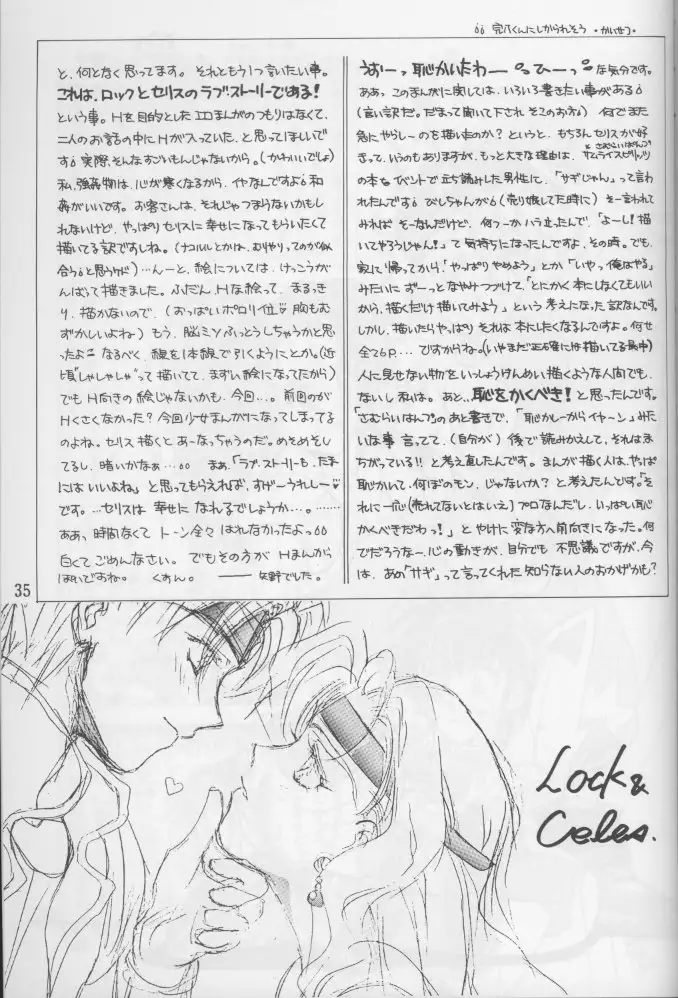 うすーっ恥かいたわーひーっな気分です。
ああっ、このまんがに関しては、いろいろ書きたい事がある
(言い訳だ。だまって聞いて下されそこのお方)何でまた
急にやらしーのも描いたのか？というと、もちろんセリスが好
きって、いうのもありますが、もっと大きな理由は、サムライスピリッツ
の本をイベントで立ち読みした男性に、「サギじゃん」って言わ
れたんですびしちゃんが(売り娘してた時に)そー言われて
みれば そーなんだけど、何つーかハラ立ったんで、「よーし！描
いてやろうじゃん！」て気持ちになったんですよ、その時。でも、
家に帰ってから「やっぱりやめよう」とか「いやっ俺はやる」
みたいに ずーっとなやみつづけて、「とにかく本にしなくてもいい
から、描くだけ描いてみよう」という考えになった訳なんです。
しかし、描いたらやっぱり それは本にしたくなるんですよ。何せ
全26P… ですからね。(いやまだ正確には描いてる最中)
人に見せない物を いっしょうけんめい描くような人間でも、
ないし私は。あと、恥をかくべき！と思ったんです。
「さむらいはんぷ」のあと書きで、「恥かしーからイヤーン」みた
いな事 言ってて、(自分が)後で読みかえして、それはま
ちがっている!! と考え直したんです。まんが描く人は、やっぱ
恥かいて、何ぼのモン、じゃないか？と考えたんです。「そ
れに一応(売れてないとはいえ)プロなんだし、いっぱい恥
かくべきだわっ！」とやけに変な方へ前向きになった。何
でだろうな〜心の動きが、自分でも 不思議ですが、今
は、あの「サギ」って言ってくれた知らない人のおかげかも？
と、何となく思ってます。それともう1つ言いたい事。
これは、ロックとセリスのラブストーリーである！
という事。Hを目的としたエロまんがのつもりはなくて、
二人のお話の中にHが入っていた、と思ってほしいで
す 実際、そんなすごいもんじゃないから。(かわいいでしょ)
私、強姦物は、心が寒くなるから、イヤなんですよ和
姦がいいです。お客さんは、それじゃつまらないかもし
れないけど、やっぱりセリスに幸せになってもらいたくて
描いてる訳ですしね。(ナコルルとかは、むりやりってのが似
合うと思うケド)…んーと、絵については、けっこうが
んばって描きました。ふだん、Hな絵って、まるっき
り、描かないので、(おっぱいポロリ位 胸もむ
ずかしいよね)もう、脳ミソふっとうしちゃうかと思
ったよ なるべく、線を1本線で引くようにとか。(近
頃"しゃしゃしゃ"って描いてて、まずい絵になってたから)
でも H向きの絵じゃないかも、今回…。前回のが
Hくさくなかった？今回少女まんがになってしまってる
のよね。セリス描くと あーなっちゃうのだ。めそめそし
てるし、暗いかなぁ… まぁ、「ラブ・ストーリーも、たまに
はいいよね」と思ってもらえれば、すげーうれしー♡
です。…セリスは 幸せに なれるでしょうか…。………
ああ、時間なくて トーン全々 はれなかったよっ
白くて ごめんなさい。でもその方が Hまんがっ
ぽいですね。 くすん。 ―― 矢野でした。
35
Lock &
Celes.